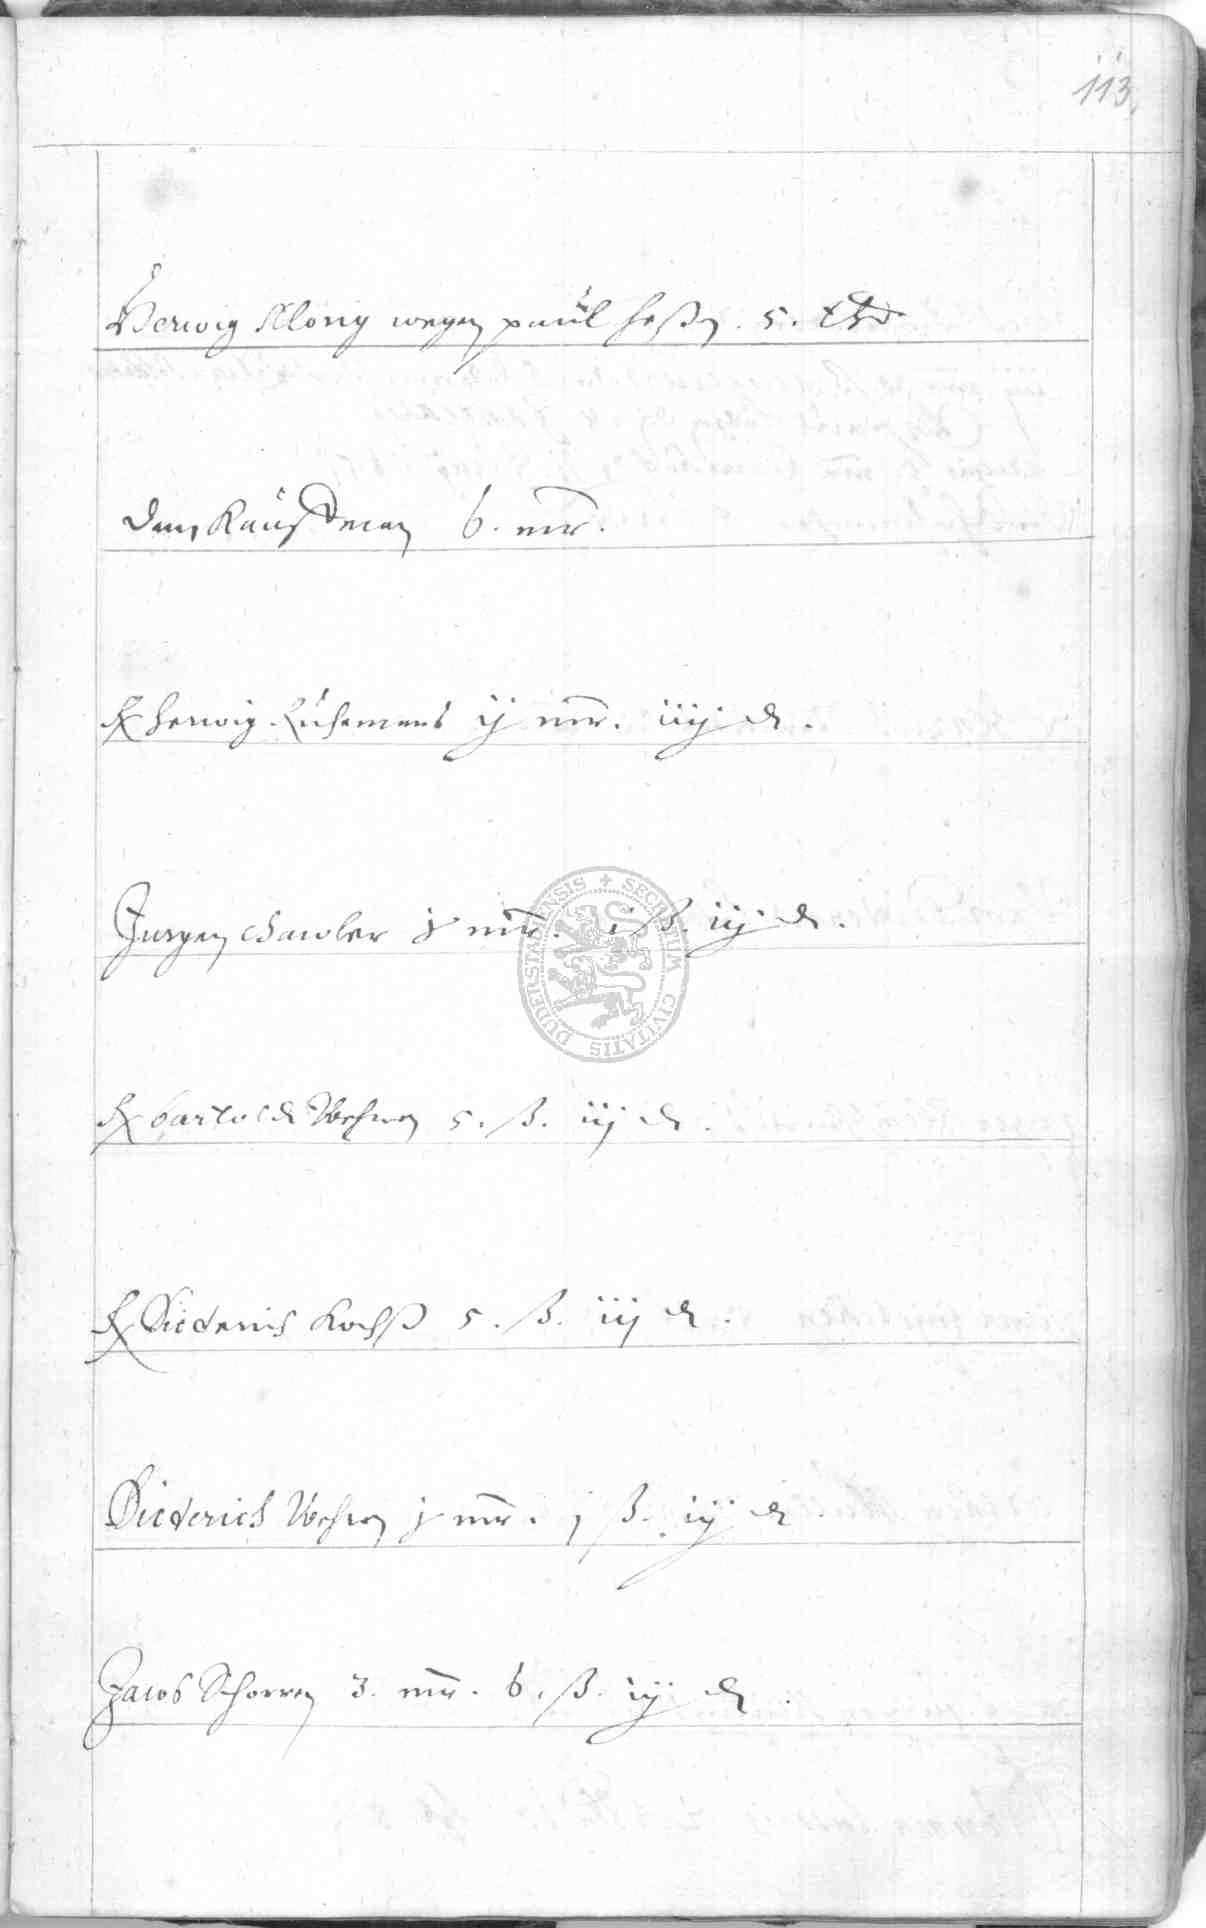 113.
Herwig Klonig wegen paul heßen. 5. 
6. mr.
herwig ij mr. iiij d.
Jurgen j mr. ß. iij d.
bartold Wehren 5. ß. iij d.
Diderich Kochß 5. ß. iij d.
Diderich Wehren j mr. j ß. iij d.
Jacob Schorren 3. mr. 6. ß. iij d.
SECRETUM CIVITATIS DUDERSTADENSIS